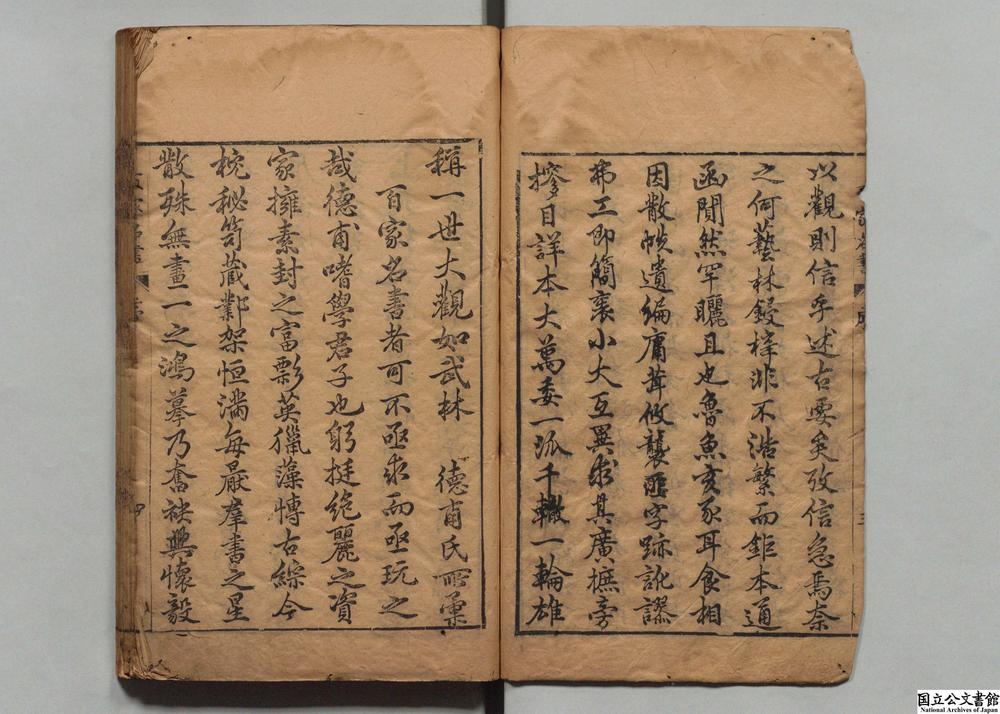 以觀則信乎述古要矣攷信急焉奈
之何藝林鋟梓非不浩繁而鉅本通
函闃然罕曬且也魯魚亥豕耳食相
因散帙遺編庸茸攸襲匪字跡訛謬
弗工即簡袠小大互異求其廣摭旁
摉目詳本大萬委一派千轍一輪雄
稱一世大觀如武林 德甫氏所彙
百家名書者可不亟求而亟玩之
哉德甫嗜學君子也躬挺絶麗之資
家擁素封之富剽英獵藻博古綜今
枕秘笥藏鄴架恒滿每厭羣書之星
散殊無畫一之鴻摹乃奮袂興懷毅
四
国立公文書館
National Archives of Japan